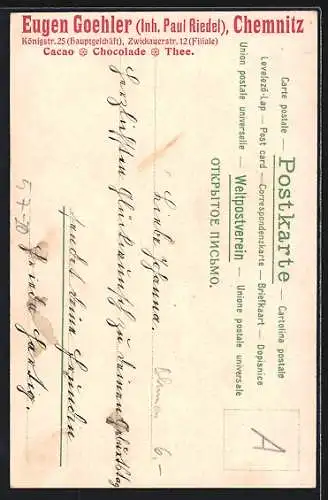 Eugen Goehler (Inh. Paul Riedel), Chemnitz
Königstr. 25 (Hauptgeschäft), Zwickauerstr. 12 (Filiale)
Cacao Chocolade Thee.
Carte postale — Postkarte — Cartolina postale
Levelező-Lap — Post card — Correspondenzkarte — Briefkaart — Dopisnice
Union postale universelle — Weltpostverein — Unione postale universale
ОТКРЫТОЕ ПИСЬМО.
Liebe Johanna.
Herzlichsten Glückwunsch zu deinem Geburtstag
sendet deine Freundin
Frieda
A
6,-